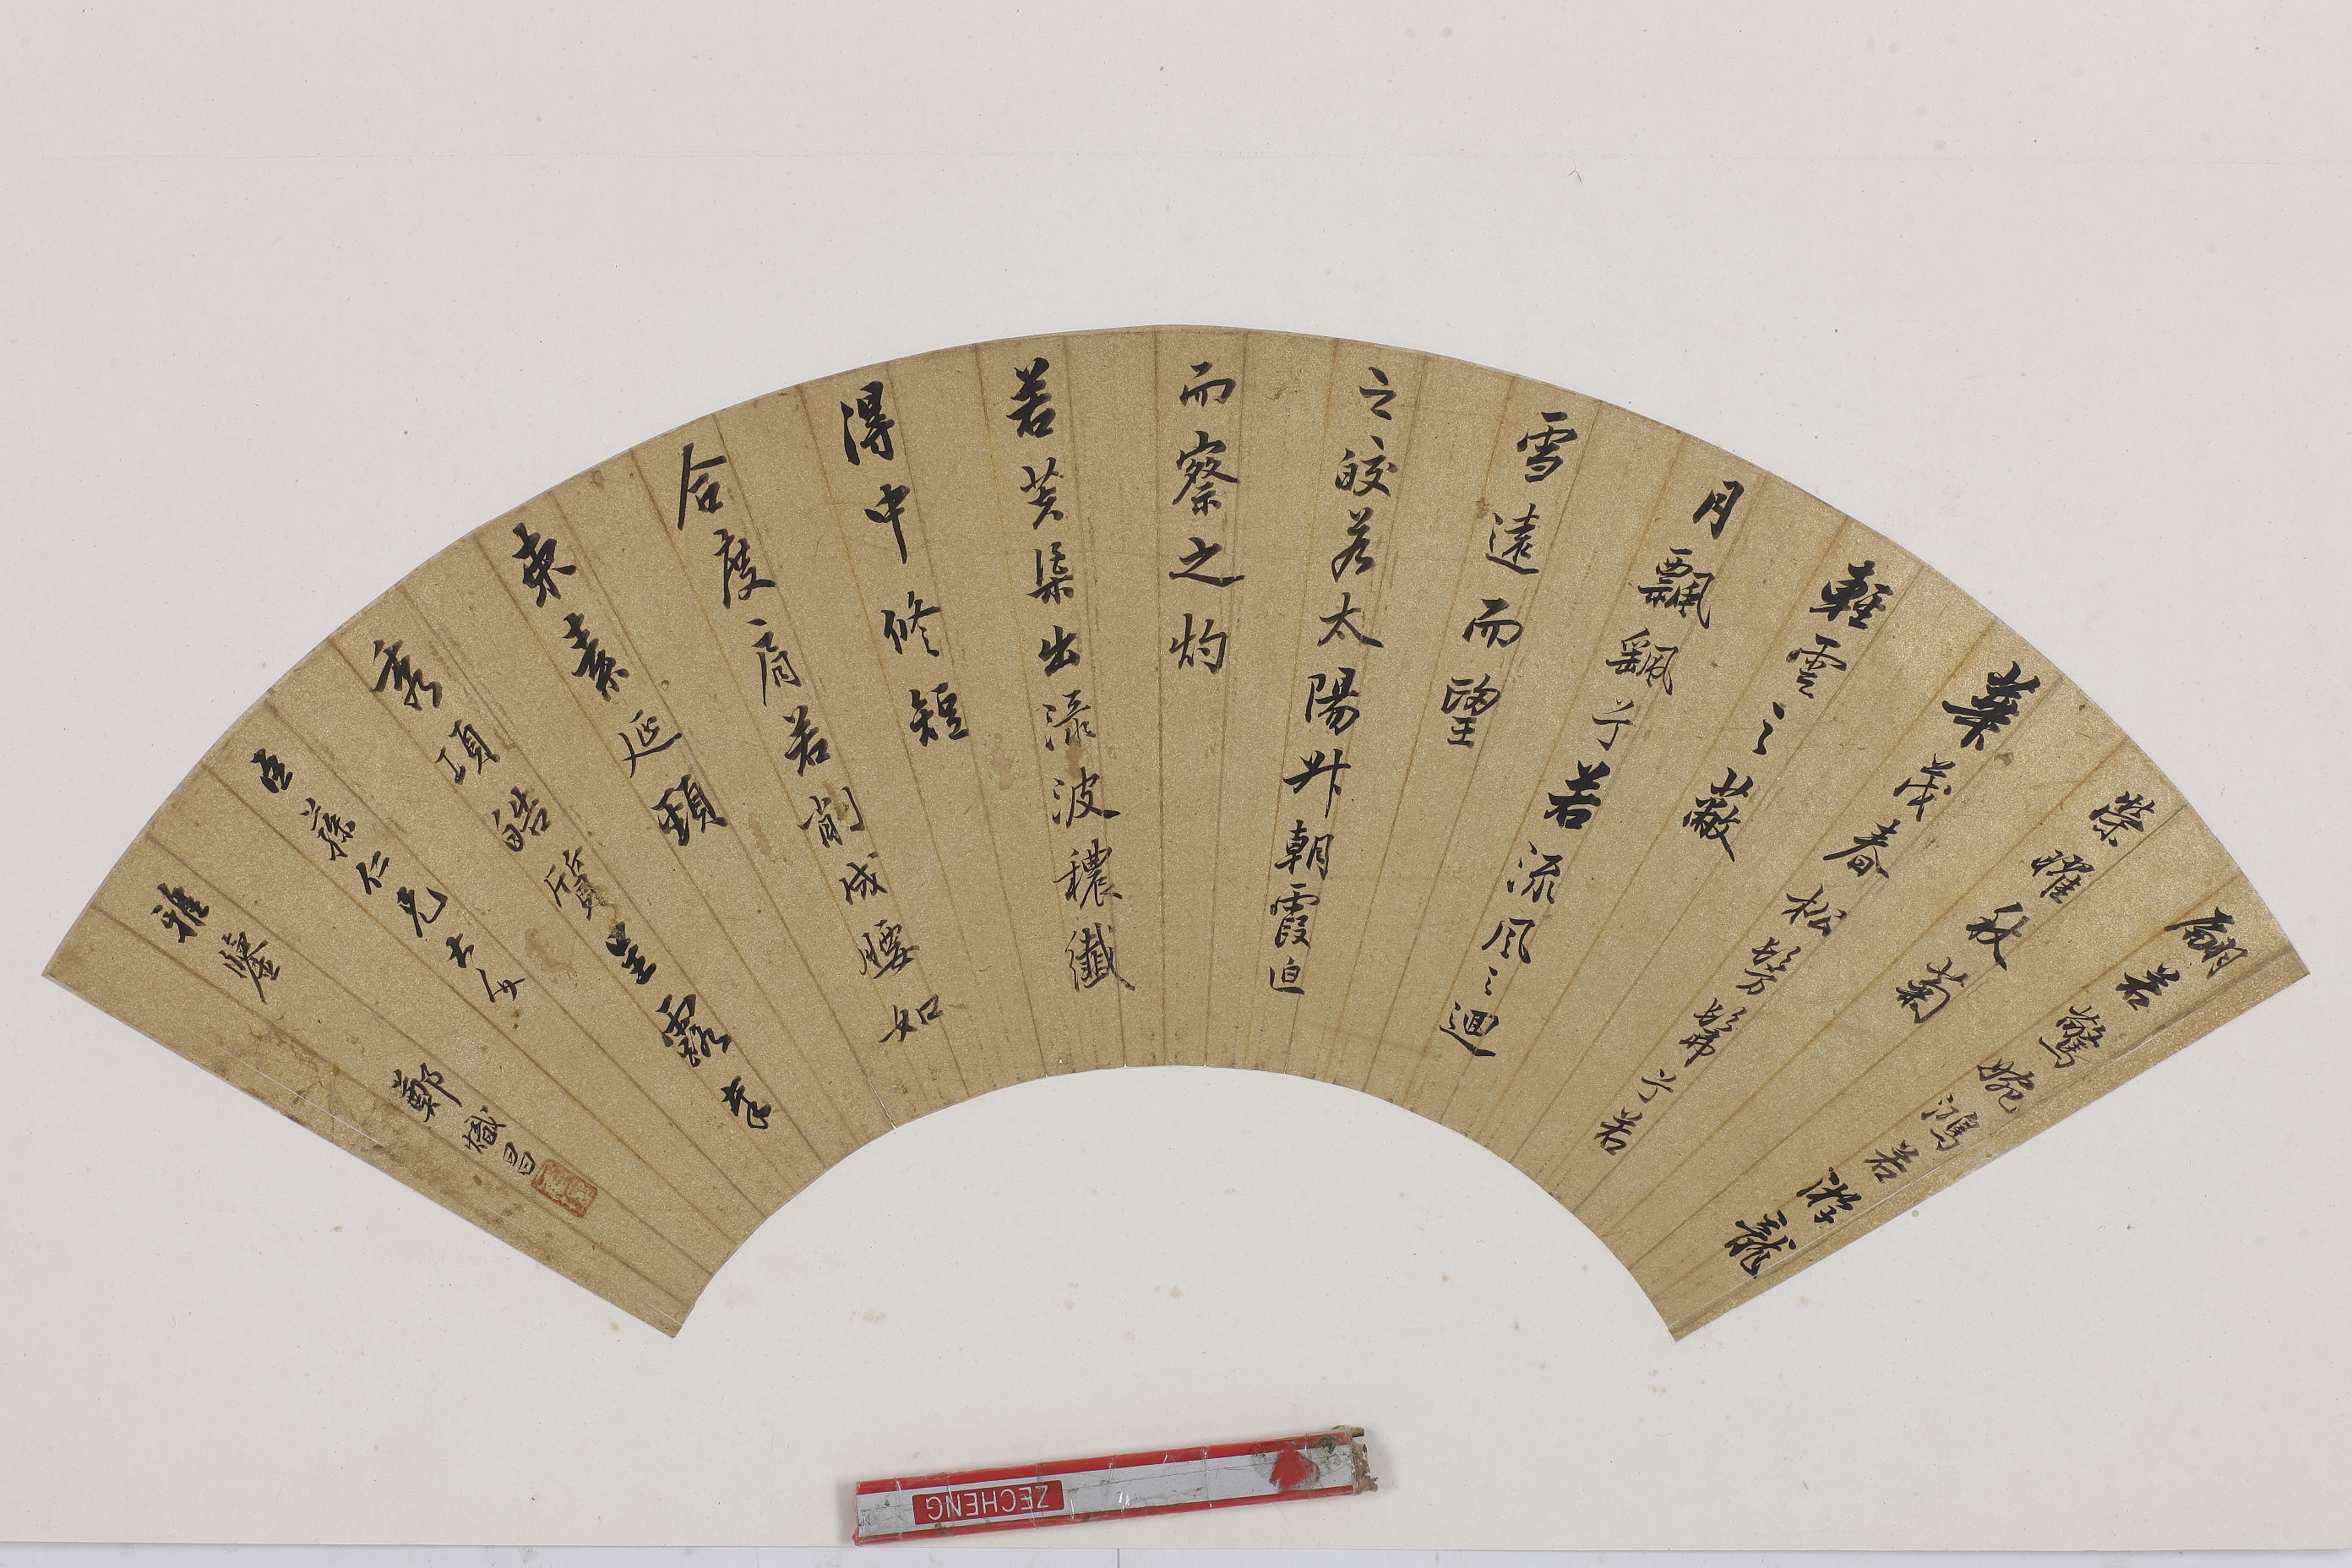 翩若驚婉鴻若游龍
榮曜秋菊
華茂春松髣髴兮若
輕雲之蔽
月飄颻兮若流風之迴
雪遠而望
之皎若太陽升朝霞迫
而察之灼
若芙渠出渌波穠纖
得中修短
合度肩若削成腰如
束素延頸
秀項皓質呈露幸
孫仁兄大
雅鑒
鄭熾昌
ZECHENG